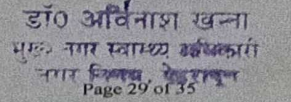 डॉ0 अविनाश खन्ना
मुख्य नगर स्वास्थ्य अधिकारी
नगर निगम, देहरादून
Page 29 of 35